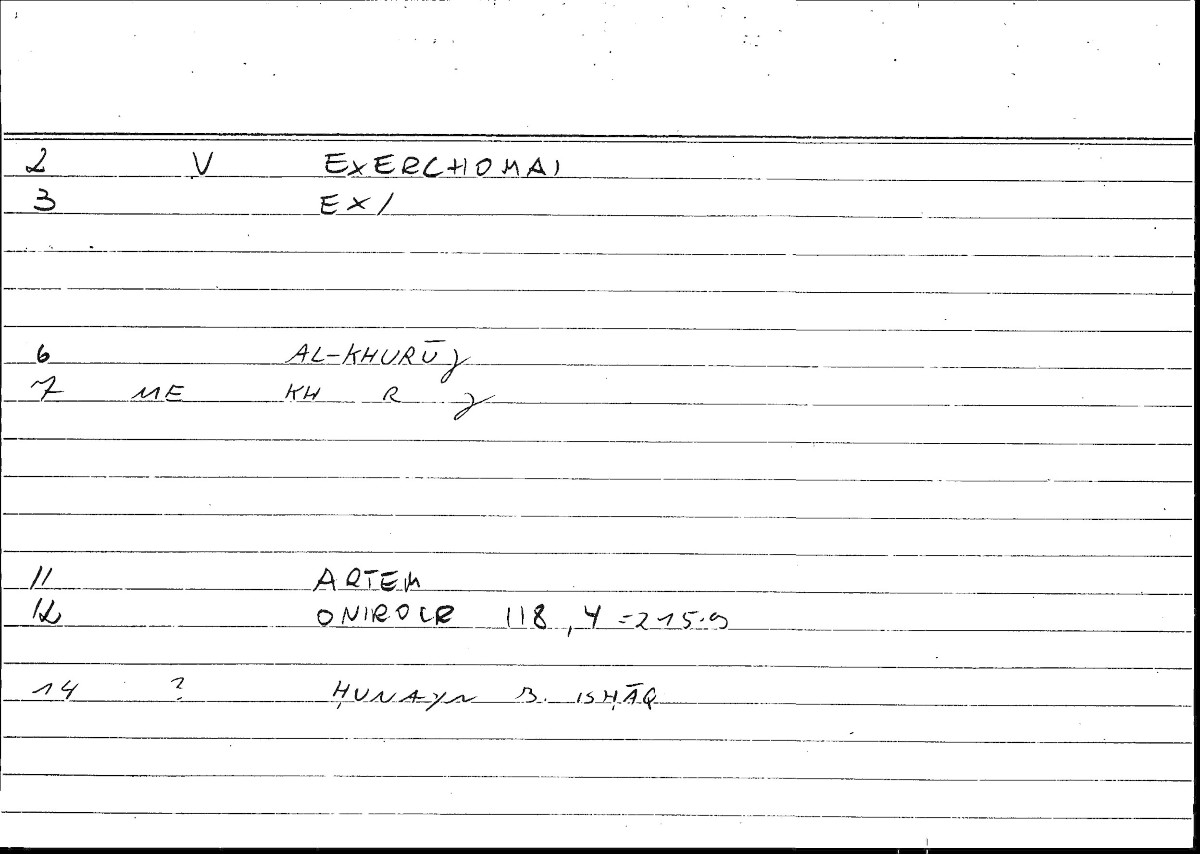 2 V EXERCHOMAI
3 EX/
6 AL-KHURŪJ
7 ME KH R J
11 ARTEM
12 ONIROCR 118,4=215.9
14 ? ḤUNAYN B. ISḤĀQ